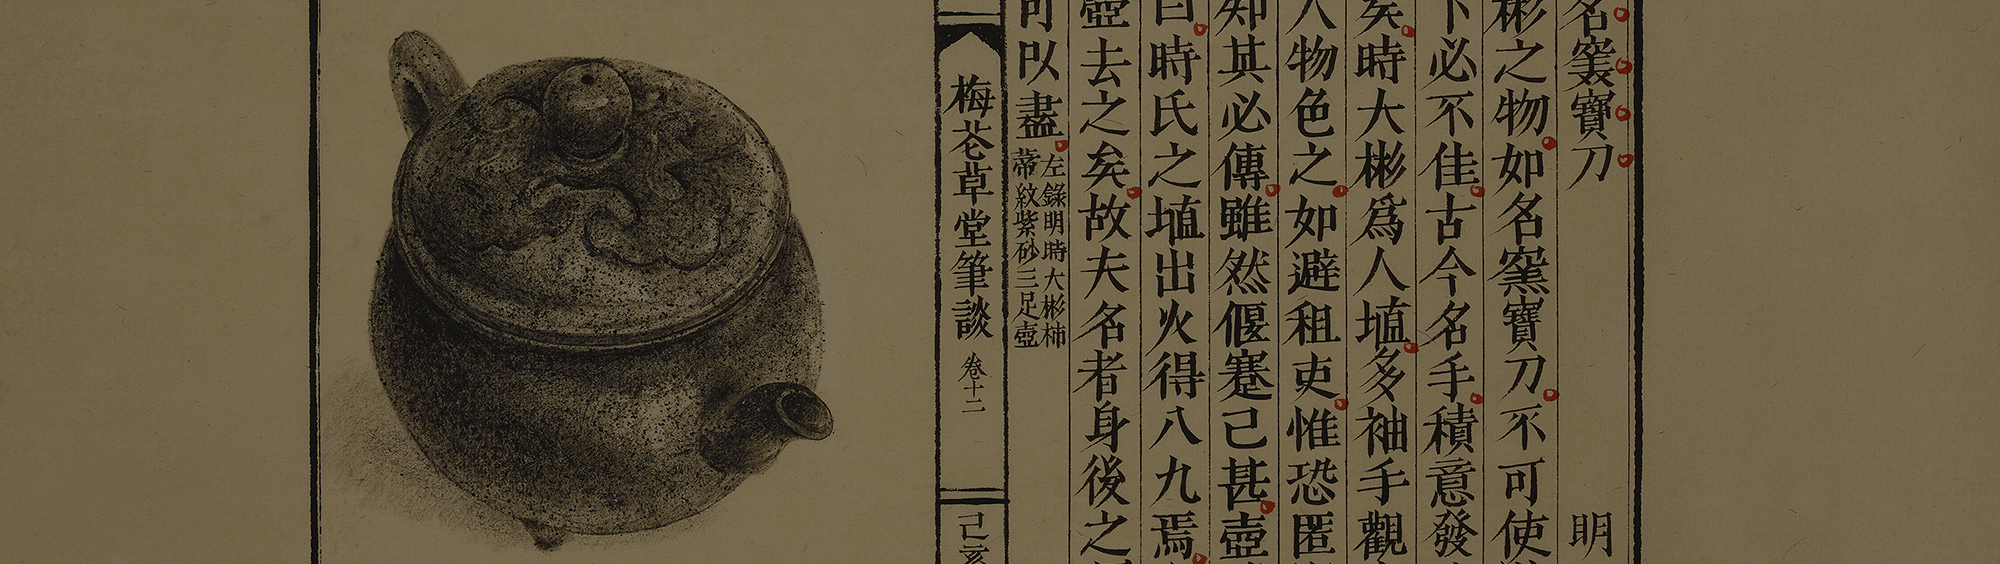 名窯寶刀 明
彬之物如名窯寶刀不可使
下必不佳古今名手積意發
矣時大彬爲人埴多袖手觀
人物色之如避租吏惟恐匿
知其必傳雖然偃蹇己甚壺
曰時氏之埴出火得八九焉
壺去之矣故夫名者身後之
可以盡
左錄明時大彬柿
蒂紋紫砂三足壺
梅花草堂筆談 卷十二
己亥